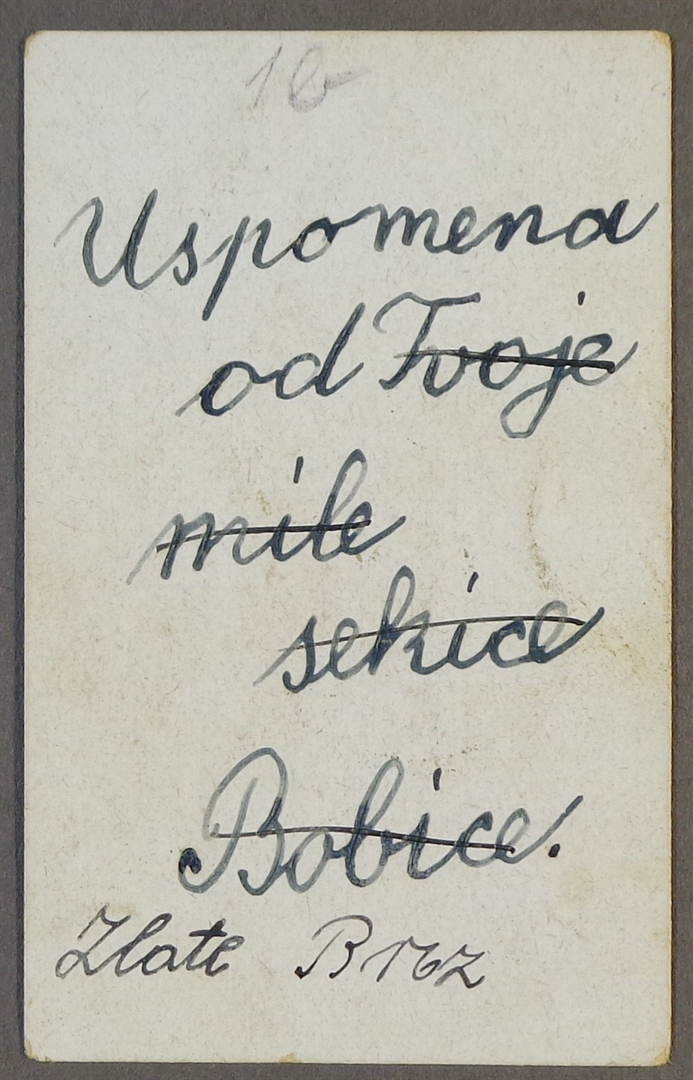 16
Uspomena
od Tvoje
mile
sekice
Bobice.
Zlate